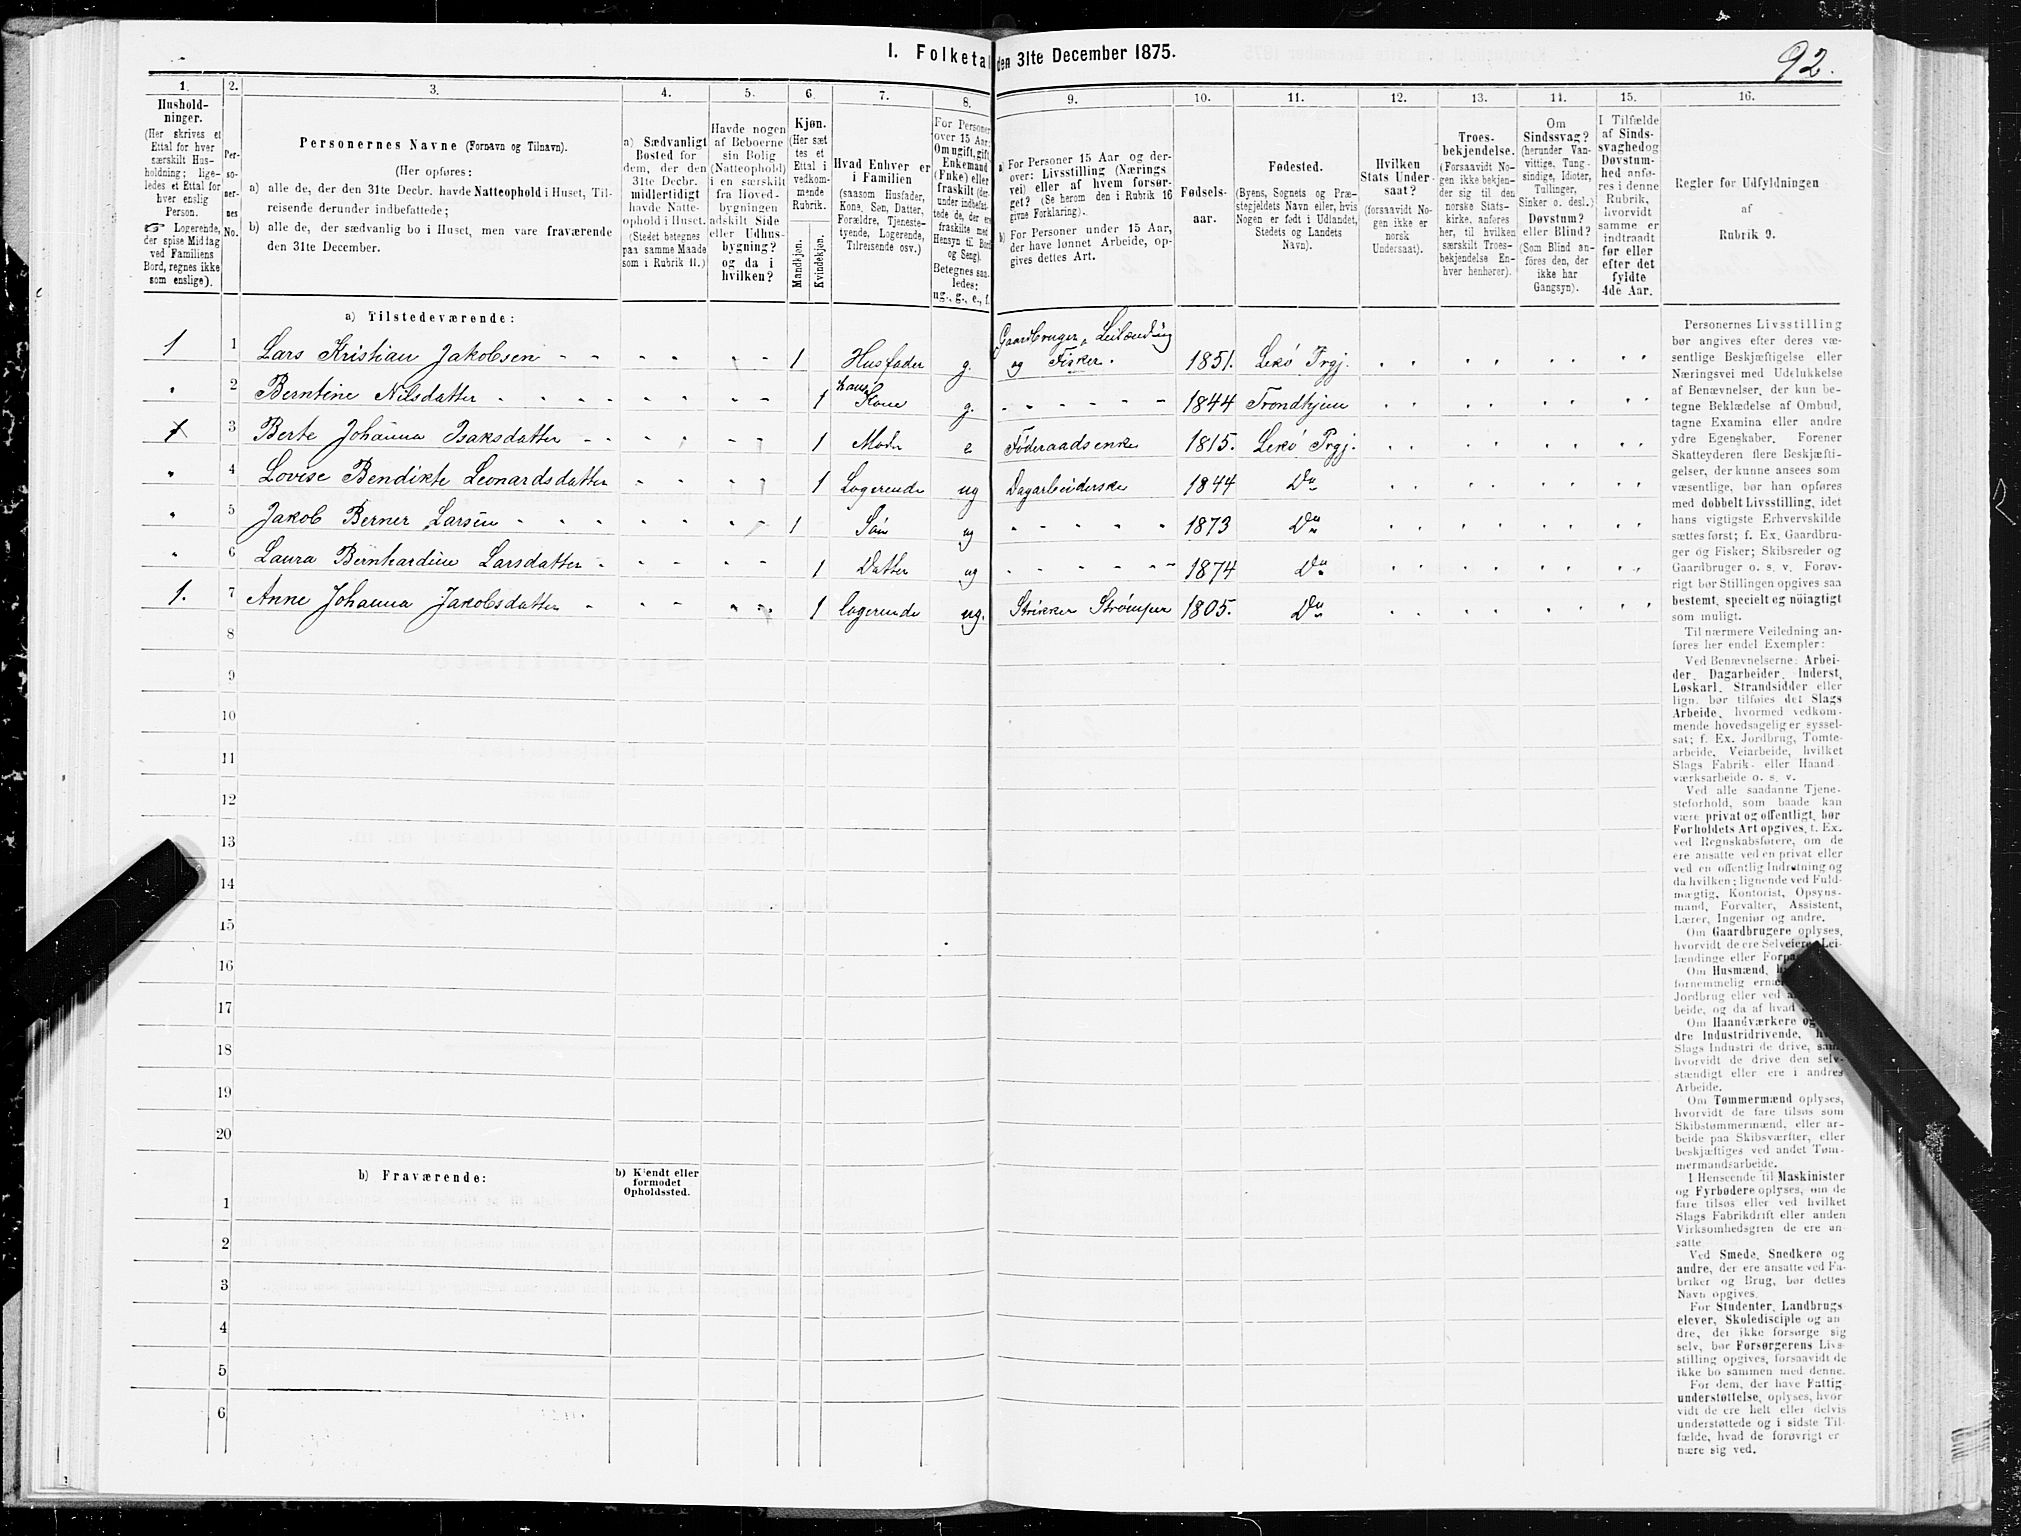 I. Folketal den 31te December 1875.
92.
1. 2. 3. 4. 5. 6. 7. 8. 9. 10. 11. 12. 13. 14. 15. 16.
Hushold-
ninger.
(Her skrives et
Ettal for hver
særskilt Hus-
holdning; lige-
ledes et Ettal for
hver enslig
Person.
☞ Logerende,
der spise Middag
ved Familiens
Bord, regnes ikke
som enslige).
Per-
so-
ner-
nes
No.
Personernes Navne (Fornavn og Tilnavn).
(Her opføres:
a) alle de, der den 31te Decbr. havde Natteophold i Huset, Til-
reisende derunder indbefattede;
b) alle de, der sædvanlig bo i Huset, men vare fraværende
den 31te December.
a) Sædvanligt
Bosted for
dem, der den
31te Decbr.
midlertidigt
havde Natte-
ophold i Huset.
(Stedet betegnes
paa samme Maade
som i Rubrik 11.)
Havde nogen
af Beboerne
sin Bolig
(Natteophold)
i en særskilt
fra Hoved-
bygningen
adskilt Side
eller Udhus-
bygning?
og da i
hvilken?
Kjøn.
(Her sæt
tes et
Ettal i
vedkom-
mende
Rubrik.
Mandkjøn.
Kvindekjøn.
Hvad Enhver er
i Familien
(saasom Husfader,
Kone, Søn, Datter,
Forældre, Tjeneste-
tyende, Logerende,
Tilreisende osv.)
For Personer
over 15 Aar:
Om ugift, gift,
Enkemand
(Enke) eller
fraskilt (der-
under indbefat-
tede de, der er
fraskilte med
Hensyn til Bord
og Seng).
Betegnes saa-
ledes:
ug., g., e., f.
a) For Personer 15 Aar og der-
over: Livsstilling (Nærings
vei) eller af hvem forsør-
get? (Se herom den i Rubrik 16
givne Forklaring).
b) For Personer under 15 Aar,
der have lønnet Arbeide, op-
gives dettes Art.
Fødsels-
aar.
Fødested.
(Byens, Sognets og Præ-
stegjeldets Navn eller, hvis
Nogen er født i Udlandet,
Stedets og Landets
Navn).
Hvilken
Stats Under-
saat?
(forsaavidt No-
gen ikke er
norsk
Undersaat).
Troes-
bekjendelse.
(Forsaavidt No-
gen ikke bekjen-
der sig til den
norske Stats-
kirke, anføres
her, til hvilken
særskilt Troes-
bekjendelse En-
hver henhører).
Om
Sindssvag?
(herunder Van-
vittige, Tung-
sindige, Idioter,
Tullinger,
Sinker o. desl.)
Døvstum?
eller Blind?
(Som Blind an-
føres den, der
ikke har
Gangsyn).
I Tilfælde
af Sinds-
svaghed og
Døvstum-
hed anfø-
res i denne
Rubrik,
hvorvidt
samme er
indtraadt
før eller
efter det
fyldte
4de Aar.
Regler for Udfyldningen
af
Rubrik 9.
a) Tilstedeværende:
1 1 Lars Kristian Jakobsen 1 Husfader g. Gaardbruger, Leilænding og Fisker. 1851. Lekø Prgj.
" 2 Berntine Nilsdatter 1 hans Kone g. 1844 Trondhjem
1 3 Berte Johanna Isaksdatter 1 Moder e Føderaadsenke 1815. Lekø Prgj.
" 4 Lovise Bendikte Leonardsdatter 1 Logerende ug Dagarbeiderske 1844 Do
" 5 Jakob Berner Larsen 1 Søn ug 1873 Do
" 6 Laura Bernhardine Larsdatter 1 Datter ug 1874 Do
1. 7 Anne Johanna Jakobsdatter 1 logerende ug. Strikker Strømper 1805. Do
8
9
10
11
12
13
14
15
16
17
18
19
20
b) Fraværende:
b) Kjendt eller
formodet
Opholdssted.
1
2
3
4
5
6
Personernes Livsstilling
bør angives efter deres væ-
sentlige Beskjæftigelse eller
Næringsvei med Udelukkelse
af Benævnelser, der kun be-
tegne Beklædelse af Ombud,
tagne Examina eller andre
ydre Egenskaber. Forener
Skatteyderen flere Beskjæfti-
gelser, der kunne ansees som
væsentlige, bør han opføres
med dobbelt Livsstilling, idet
hans vigtigste Erhvervskilde
sættes først; f. Ex. Gaardbru-
ger og Fisker; Skibsreder og
Gaardbruger o. s. v. Forøv-
rigt bør Stillingen opgives saa
bestemt, specielt og nöiagtigt
som muligt.
Til nærmere Veiledning an-
føres her endel Exempler:
Ved Benævnelserne: Arbei-
der, Dagarbeider, Inderst,
Løskarl, Strandsidder eller
lign. bør tilføies det Slags
Arbeide, hvormed vedkom-
mende hovedsagelig er syssel-
sat; f. Ex. Jordbrug, Tomte-
arbeide, Veiarbeide, hvilket
Slags Fabrik- eller Haand
værksarbeide o. s. v.
Ved alle saadanne Tjene-
steforhold, som baade kan
være privat og offentligt, bør
Forholdets Art opgives, f. Ex.
ved Regnskabsførere, om de
ere ansatte ved en privat eller
ved en offentlig Indretning og
da hvilken; lignende ved Fuld-
mægtig, Kontorist, Opsyns-
mand, Forvalter, Assistent,
Lærer, Ingeniør og andre.
Om Gaardbrugere oplyses,
hvorvidt de ere Selveiere, Lei-
lændinge eller
Om Husmænd,
fornemmelig
Jordbrug eller ved
beide, og da af hvad
Om Haandværkere og
dre Industridrivende,
Slags Industri de drive, samt
hvorvidt de drive den selv-
stændigt eller ere i andres
Arbeide.
Om Tømmermænd oplyses,
hvorvidt de fare tilsøs som
Skibstømmermænd, eller ar-
beide paa Skibsværfter, eller
beskjæftiges ved andet Tøm-
mermandsarbeide.
I Henseende til Maskinister
og Fyrbødere oplyses, om de
fare tilsøs eller ved hvilket
Slags Fabrikdrift eller anden
Virksomhedsgren de ere an-
satte
Ved Smede, Snedkere og
andre, der ere ansatte ved Fa-
briker og Brug, bør dettes
Navn opgives.
For Studenter, Landbrugs
elever, Skoledisciple og an
dre, der ikke forsørge sig
selv, bør Forsørgerens Livs-
stilling opgives, forsaavidt de
ikke bo sammen med denne.
For dem, der have Fattig
understøttelse, oplyses, hvor
vidt de ere helt eller delvis
understøttede og i sidste Til-
fælde, hvad de forøvrigt er
nære sig ved.